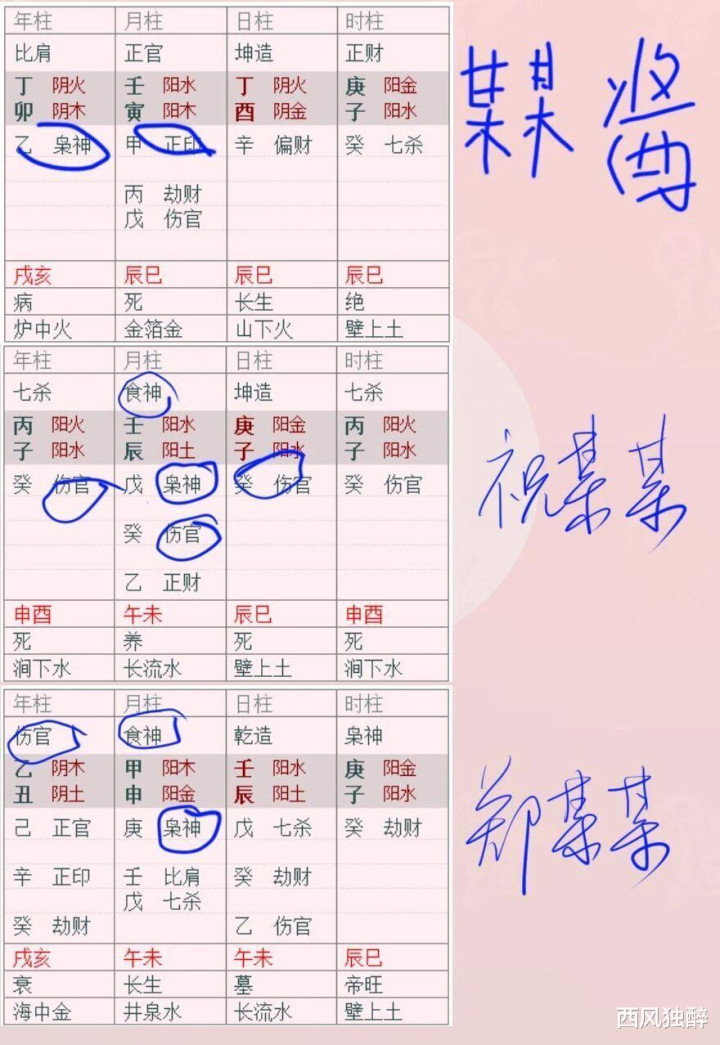 年柱 月柱 日柱 时柱
比肩 正官 坤造 正财
丁 阴火 壬 阳水 丁 阴火 庚 阳金
卯 阴木 寅 阳木 酉 阴金 子 阳水
乙 枭神 甲 正印 辛 偏财 癸 七杀
丙 劫财
戊 伤官
戌亥 辰巳 辰巳 辰巳
病 死 长生 绝
炉中火 金箔金 山下火 壁上土
某某 酱
年柱 月柱 日柱 时柱
七杀 食神 坤造 七杀
丙 阳火 壬 阳水 庚 阳金 丙 阳火
子 阳水 辰 阳土 子 阳水 子 阳水
癸 伤官 戊 枭神 癸 伤官 癸 伤官
癸 伤官
乙 正财
申酉 午未 辰巳 申酉
死 养 死 死
涧下水 长流水 壁上土 涧下水
祝某某
年柱 月柱 日柱 时柱
伤官 食神 乾造 枭神
乙 阴木 甲 阳木 壬 阳水 庚 阳金
丑 阴土 申 阳金 辰 阳土 子 阳水
己 正官 庚 枭神 戊 七杀 癸 劫财
辛 正印 壬 比肩 癸 劫财
戊 七杀
癸 劫财 乙 伤官
戌亥 午未 午未 辰巳
衰 长生 墓 帝旺
海中金 井泉水 长流水 壁上土
郑某某
西风独醉